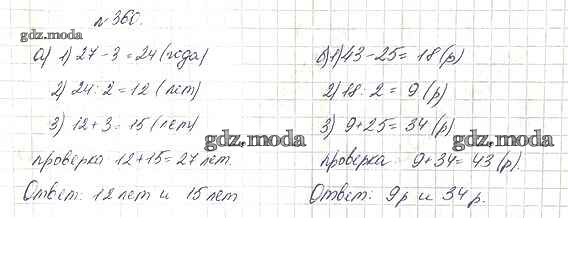 №360.
gdz.moda
а) 1) 27-3=24 (года)
2) 24:2=12 (лет)
3) 12+3=15 (лет)
проверка 12+15=27 лет.
Ответ: 12 лет и 15 лет
б) 1) 43-25=18 (р)
2) 18:2=9 (р)
3) 9+25=34 (р)
проверка 9+34=43 (р).
Ответ: 9р и 34 р.
gdz.moda
gdz.moda